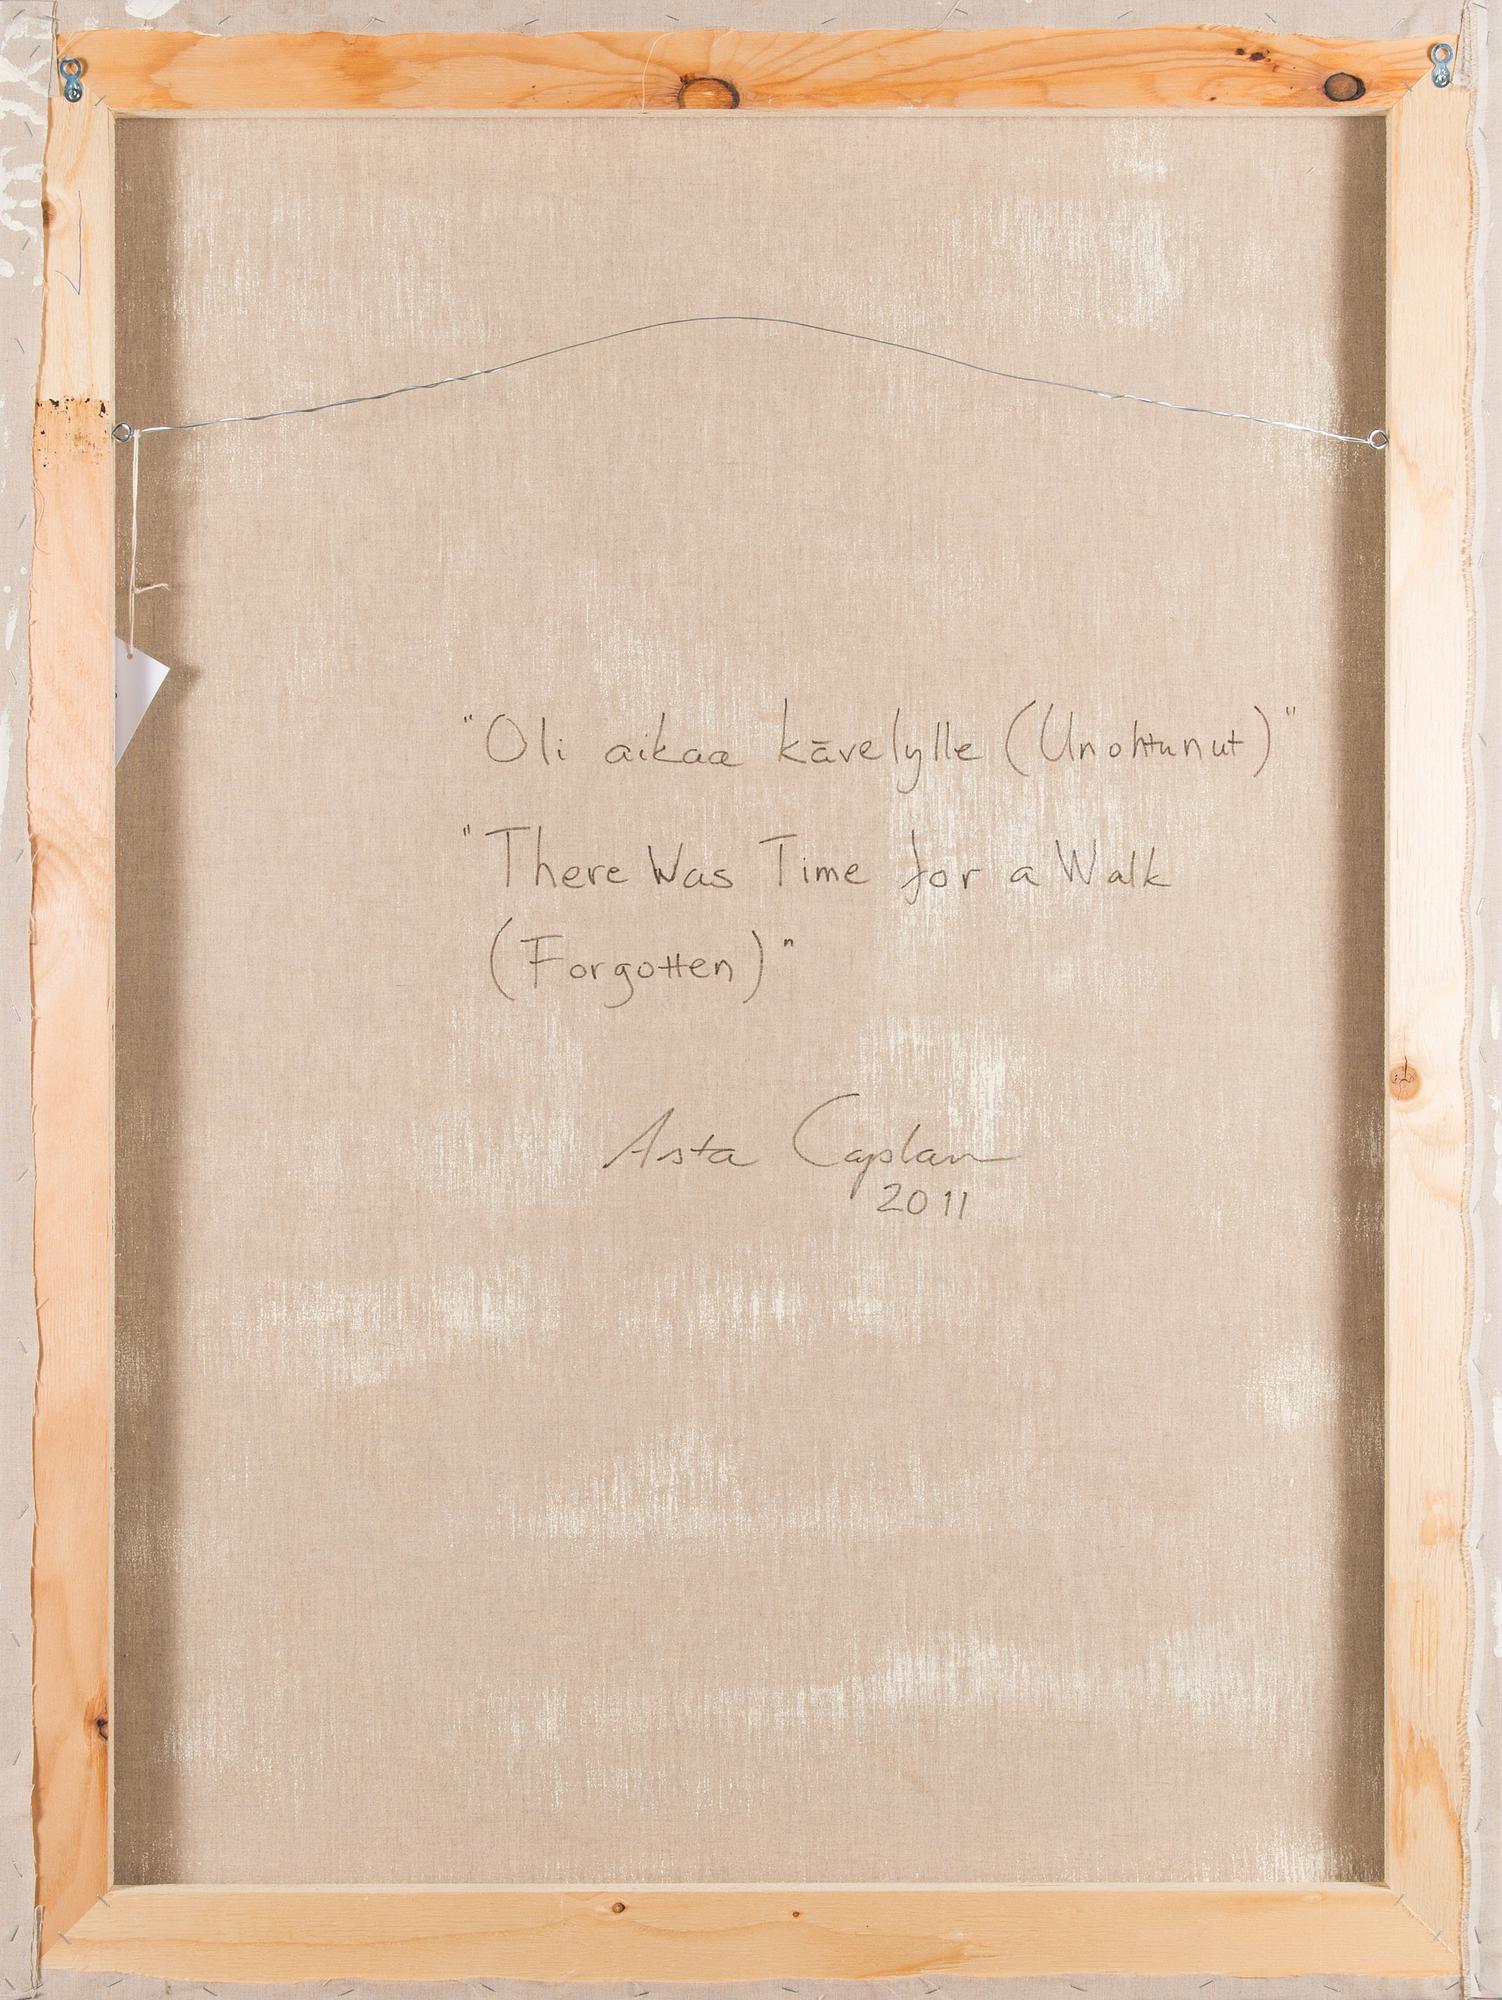 "Oli aikaa kävelylle (Unohtunut)"
"There Was Time for a Walk
(Forgotten)"
Asta Caplan
2011